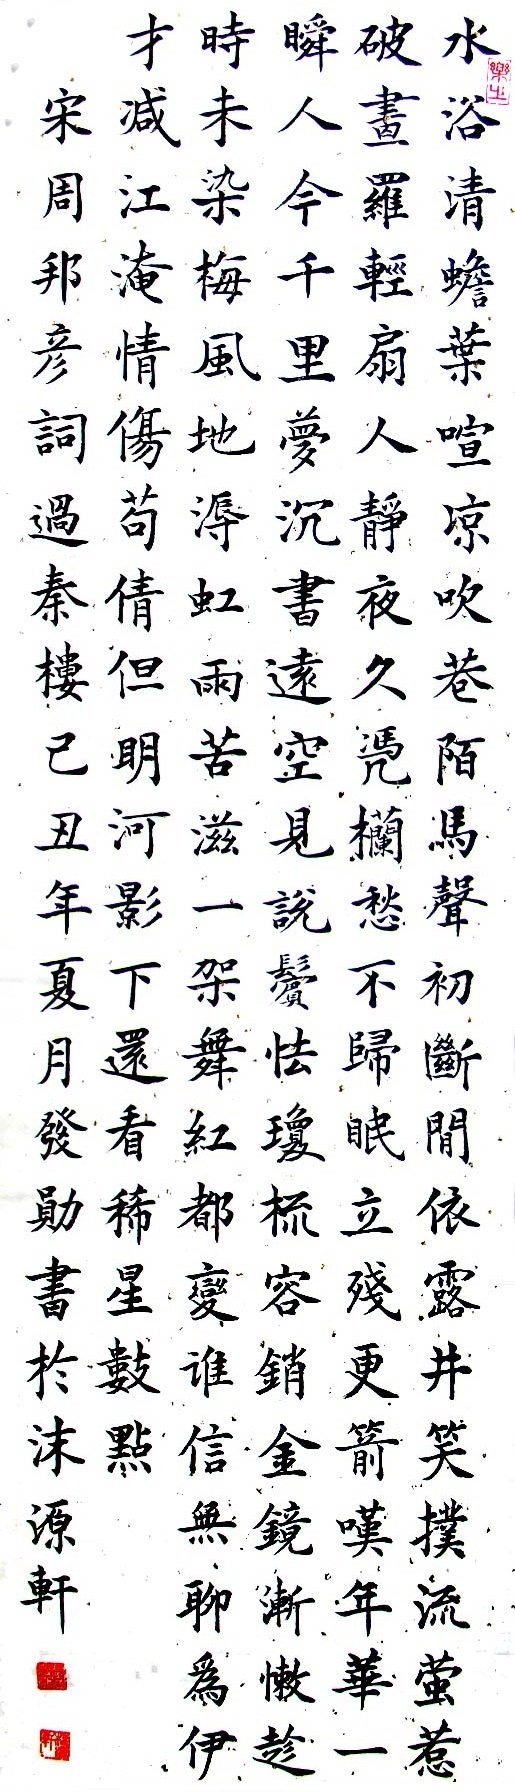 水浴清蟾葉喧凉吹巷陌馬聲初斷閒依露井笑撲流螢惹
破畫羅輕扇人靜夜久凴欄愁不歸眠立殘更箭嘆年華一
瞬人今千里夢沉書遠空見說鬢怯瓊梳容銷金鏡漸懒趁
時未染梅風地溽虹雨苔滋一架舞紅都變谁信無聊為伊
才减江淹情傷荀倩但明河影下還看稀星數點
宋周邦彦詞過秦樓己丑年夏月發勛書於沫源軒